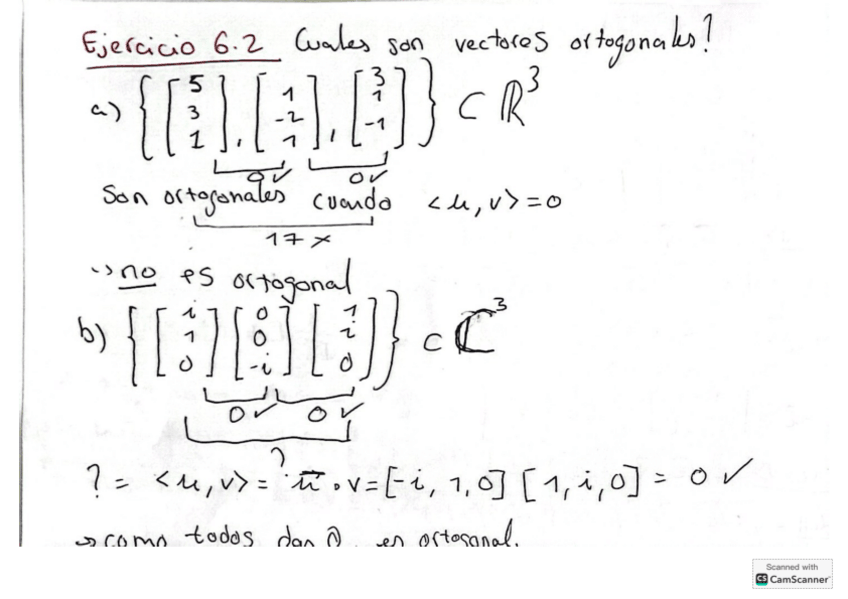 Ejercicio 6.2 Cuales son vectores ortogonales?
a) {[5 3 1], [1 -2 1], [3 1 -1]} ⊂ ℝ³
0✓ 0✓
Son ortogonales cuando <u, v> = 0
17 x
↪ no es ortogonal
b) {[i 1 0] [0 0 -i] [1 i 0]} ⊂ ℂ³
0✓ 0✓
?
? = <u, v> = ū • v = [-i, 1, 0] [1, i, 0] = 0 ✓
→ como todos dan 0, es ortogonal.
Scanned with
CS CamScanner